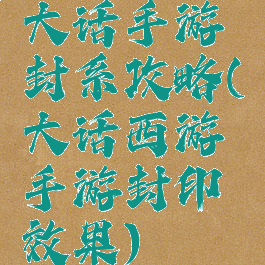 大话手游
封系攻略(
大话西游
手游封印
效果)